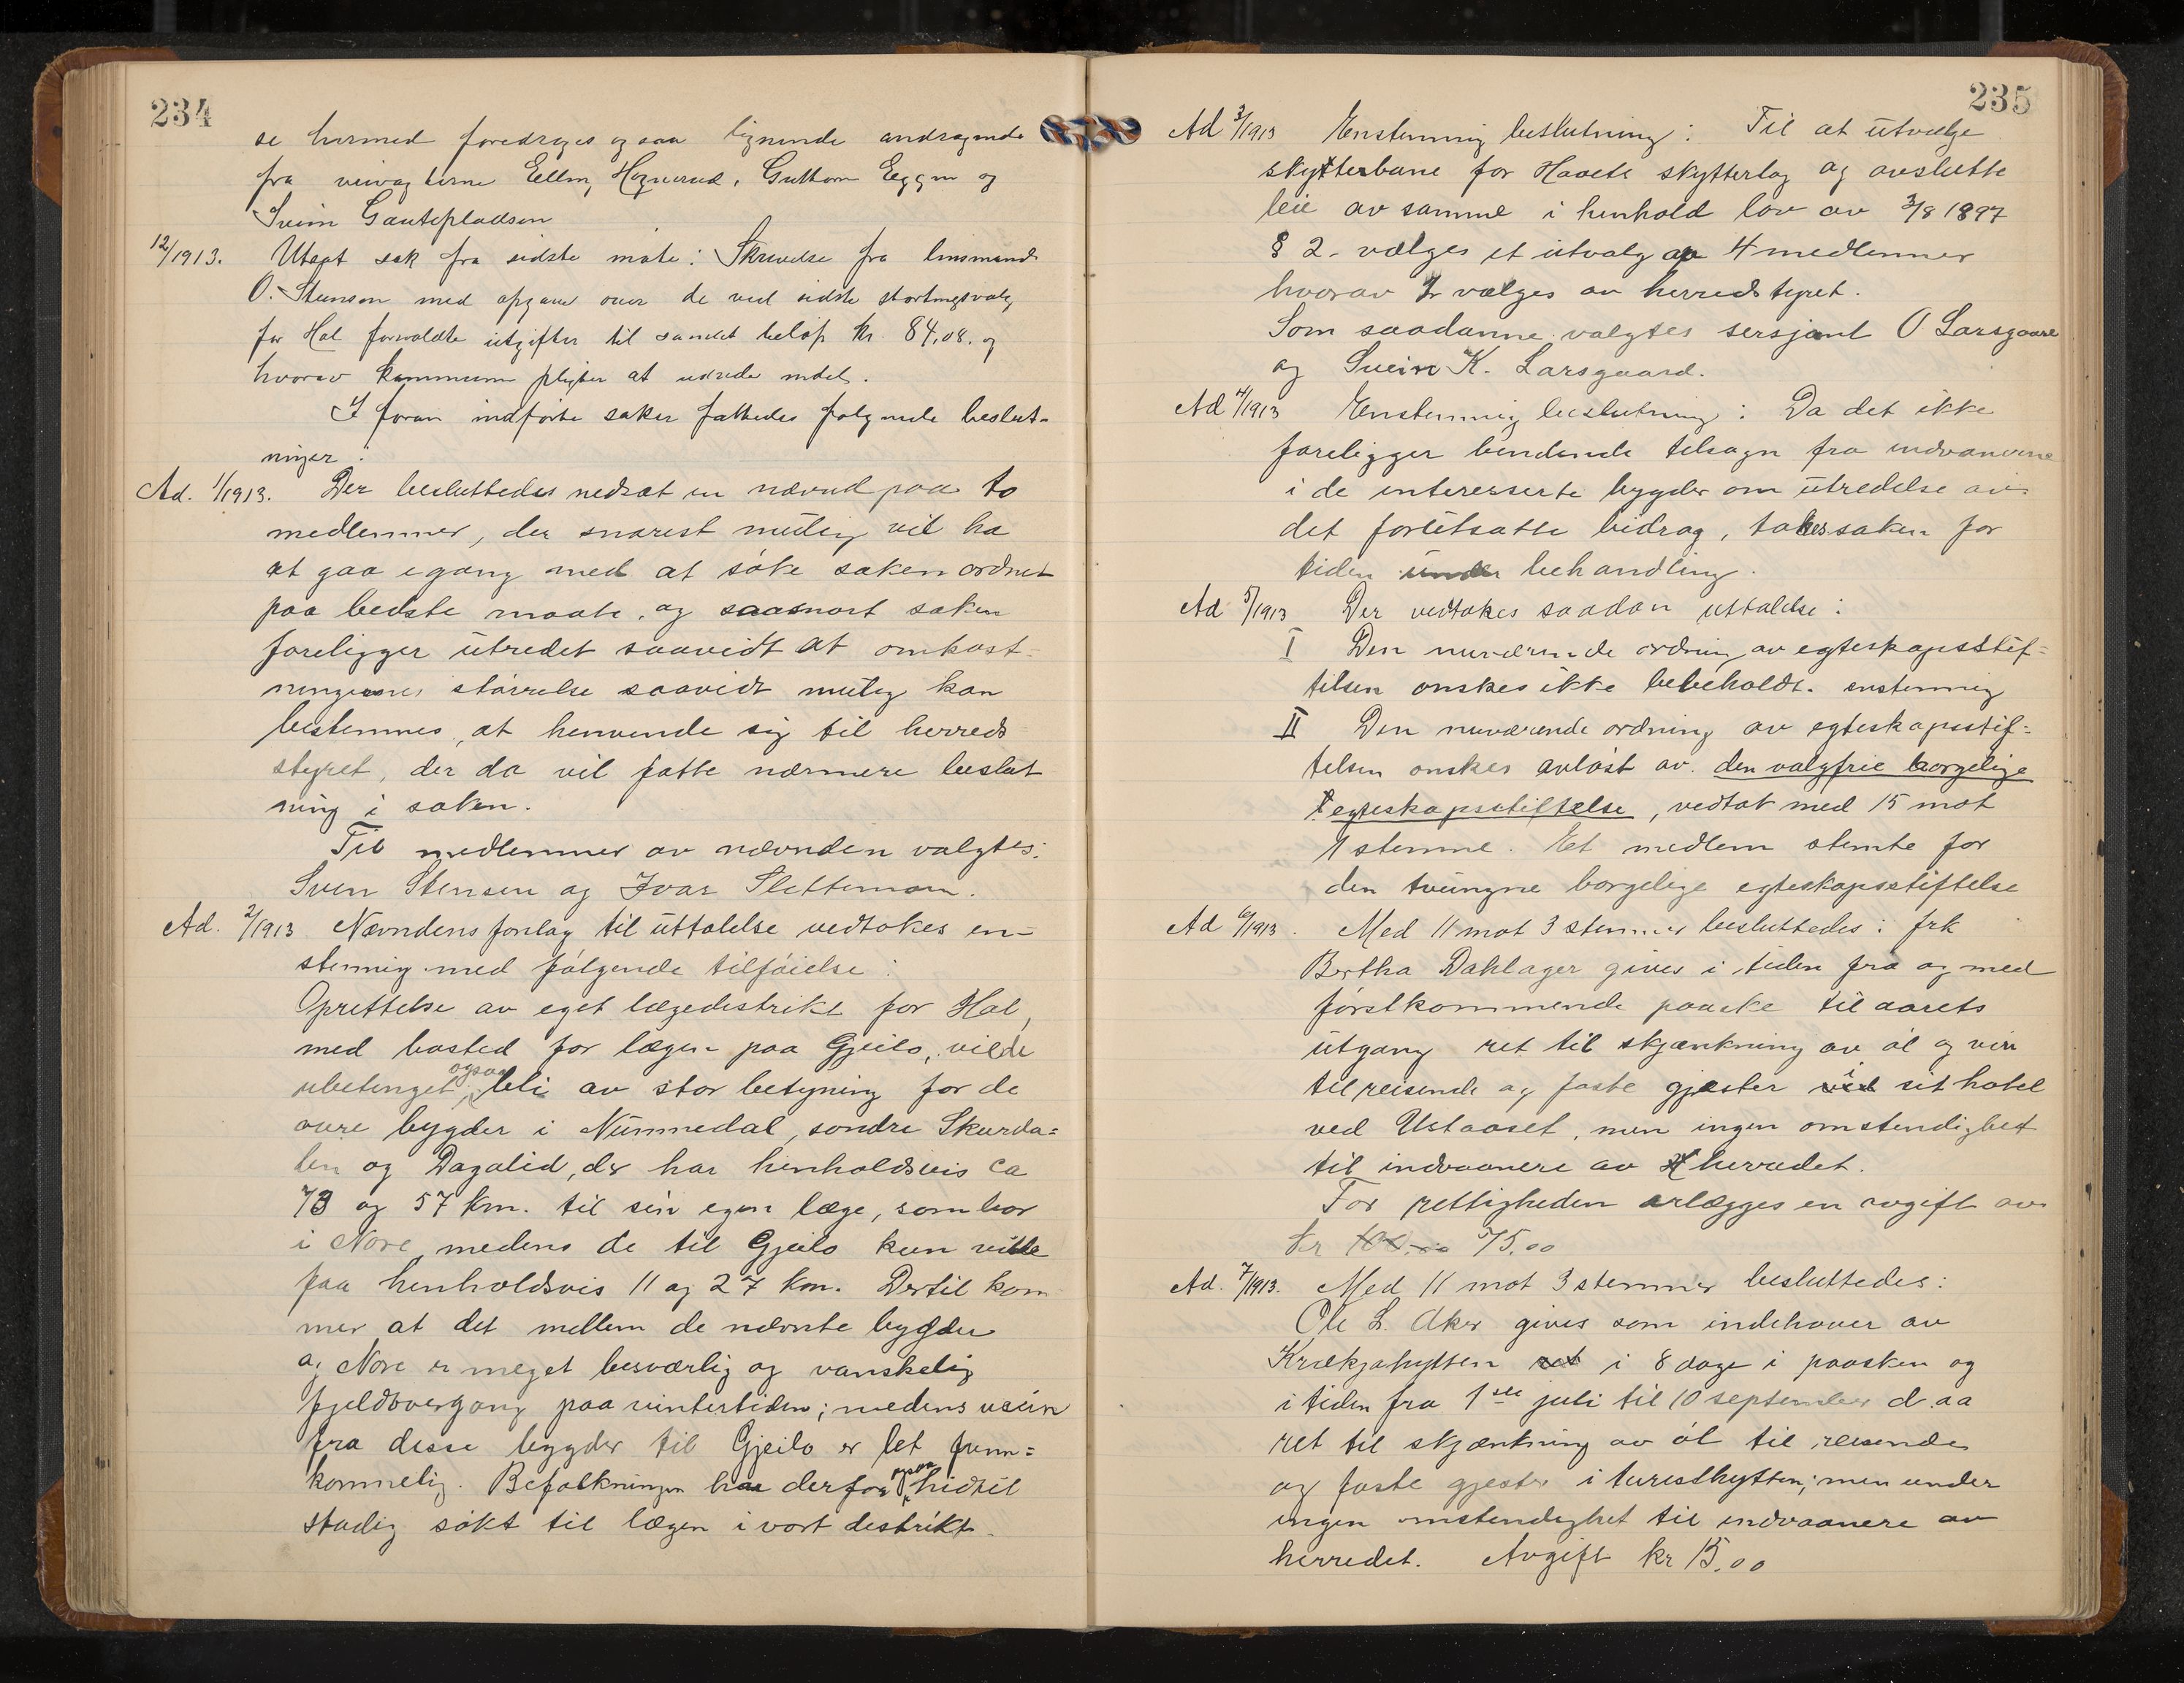 234
se hermed foredrages ogsaa lignende andragende
fra veivagterne Ellen, Hognerud, Guttorm Eggen og
Svein Gauteplassen
12/1913. Utsat sak fra sidste møte: Skrivelse fra lensmand
O. Stensen med opgave over de ved sidste stortingsvalg
for Hol forvoldte utgifter til samlet beløp kr. 84,08. og
hvorav kommunen pligter at utrede en del.
I foran indførte saker fattedes følgende beslut-
ninger:
Ad. 1/1913. Der besluttedes nedsat en nævnd paa to
medlemmer, der snarest mulig vil ha
at gaa igang med at søke saken ordnet
paa bedste maate, og saasnart saken
foreligger utredet saavidt at omkost-
ningernes størrelse saavidt mulig kan
bestemmes, at henvende sig til herreds
styret, der da vil fatte nærmere beslut
ning i saken.
Til medlemmer av nævnden valgtes:
Sven Stensen og Ivar Slettemoen.
Ad. 2/1913 Nævndens forslag til uttalelse vedtokes en-
stemmig med følgende tilføielse:
Oprettelse av eget lægedistrikt for Hol,
med bosted for lægen paa Gjeilo, vilde
ubetinget ogsaa bli av stor betyning for de
øvre bygder i Nummedal, søndre Skurda-
len og Dagalid, der har henholdsvis ca
73 og 57 km. til sin egen læge, som bor
i Nore, medens de til Gjeilo kun vilde
faa henholdsvis 11 og 27 km. Dertil kom
mer at det mellem de nævnte bygder
og Nore er meget besværlig og vanskelig
fjeldovergang paa vintertiden; medens veien
fra disse bygder til Gjeilo er let frem-
kommelig. Befolkningen har derfor ogsaa hidtil
stadig søkt til lægen i vort distrikt.
235
Ad 3/1913 Enstemmig beslutning: Til at utvælge
skytterbane for Haaets skytterlag og avslutte
leie av samme i henhold lov av 3/8 1897
§ 2. vælges et utvalg av 4 medlemmer
hvorav 2 vælges av herredstyret.
Som saadanne valgtes sersjant O Larsgaard
og Svein K. Larsgaard.
Ad 4/1913 Enstemmig beslutning: Da det ikke
foreligger bindende tilsagn fra indvaanerne
i de interesserte bygder om utredelse av
det forutsatte bidrag, takes saken for
tiden under behandling.
Ad 5/1913 Der vedtokes saadan uttalelse:
I Den nuværende ordning av egteskapsstif-
telsen ønskes ikke bebeholdt. enstemmig
II Den nuværende ordning av egteskapsstif-
telsen ønskes avløst av den valgfrie borgelige
egteskapsstiftelse, vedtat med 15 mot
1 stemme. Et medlem stemte for
den tvungne borgelige egteskapsstiftelse
Ad 6/1913. Med 11 mot 3 stemmer besluttedes: frk
Bertha Dahlager gives i tiden fra og med
førstkommende paaske til aarets
utgang ret til skjænkning av øl og vin
til reisende og faste gjester ved i sit hotel
ved Ustaoset, men ingen omstendighet
til indvaanere av herredet.
For rettigheden erlægges en avgift av
kr 100.00 75.00
Ad. 7/1913. Med 11 mot 3 stemmer besluttedes:
Ole L. Aker gives som indehaver av
Krækjahytten ret i 8 dage i paasken og
i tiden fra 1ste juli til 10 september d. aa
ret til skjænkning av øl til reisende
og faste gjester i turisthytten; men under
ingen omstendighet til indvaanere av
herredet. Avgift kr 15.00